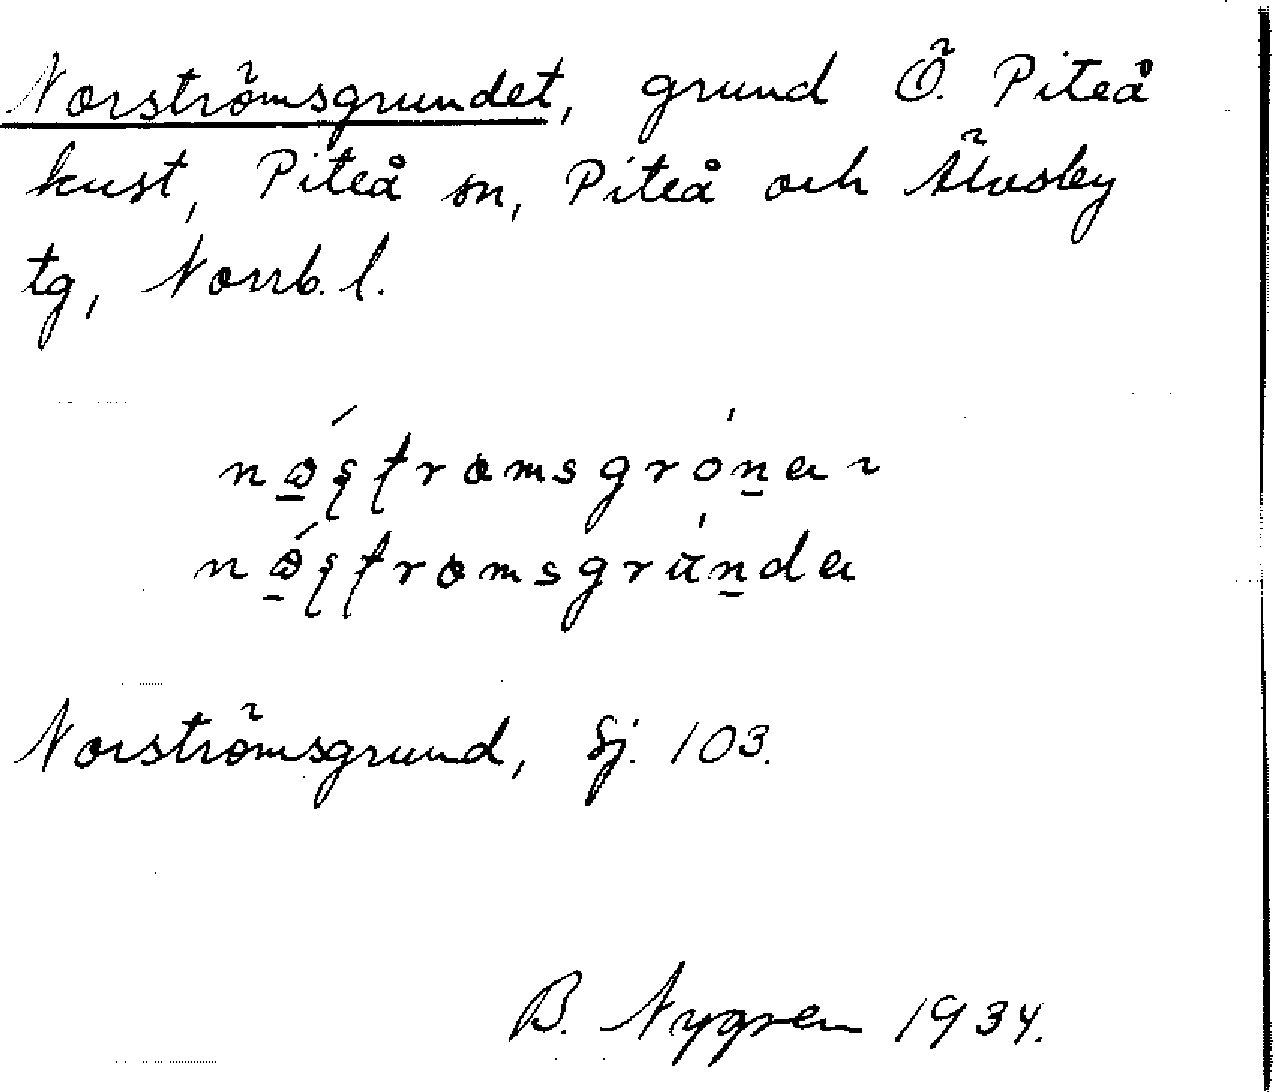 Norströmsgrundet, grund Ö. Piteå
kust, Piteå sn, Piteå och Älvsby
tg, Norrb. l.
Norströmsgrund, Sj. 103.
B. Nygren 1934.